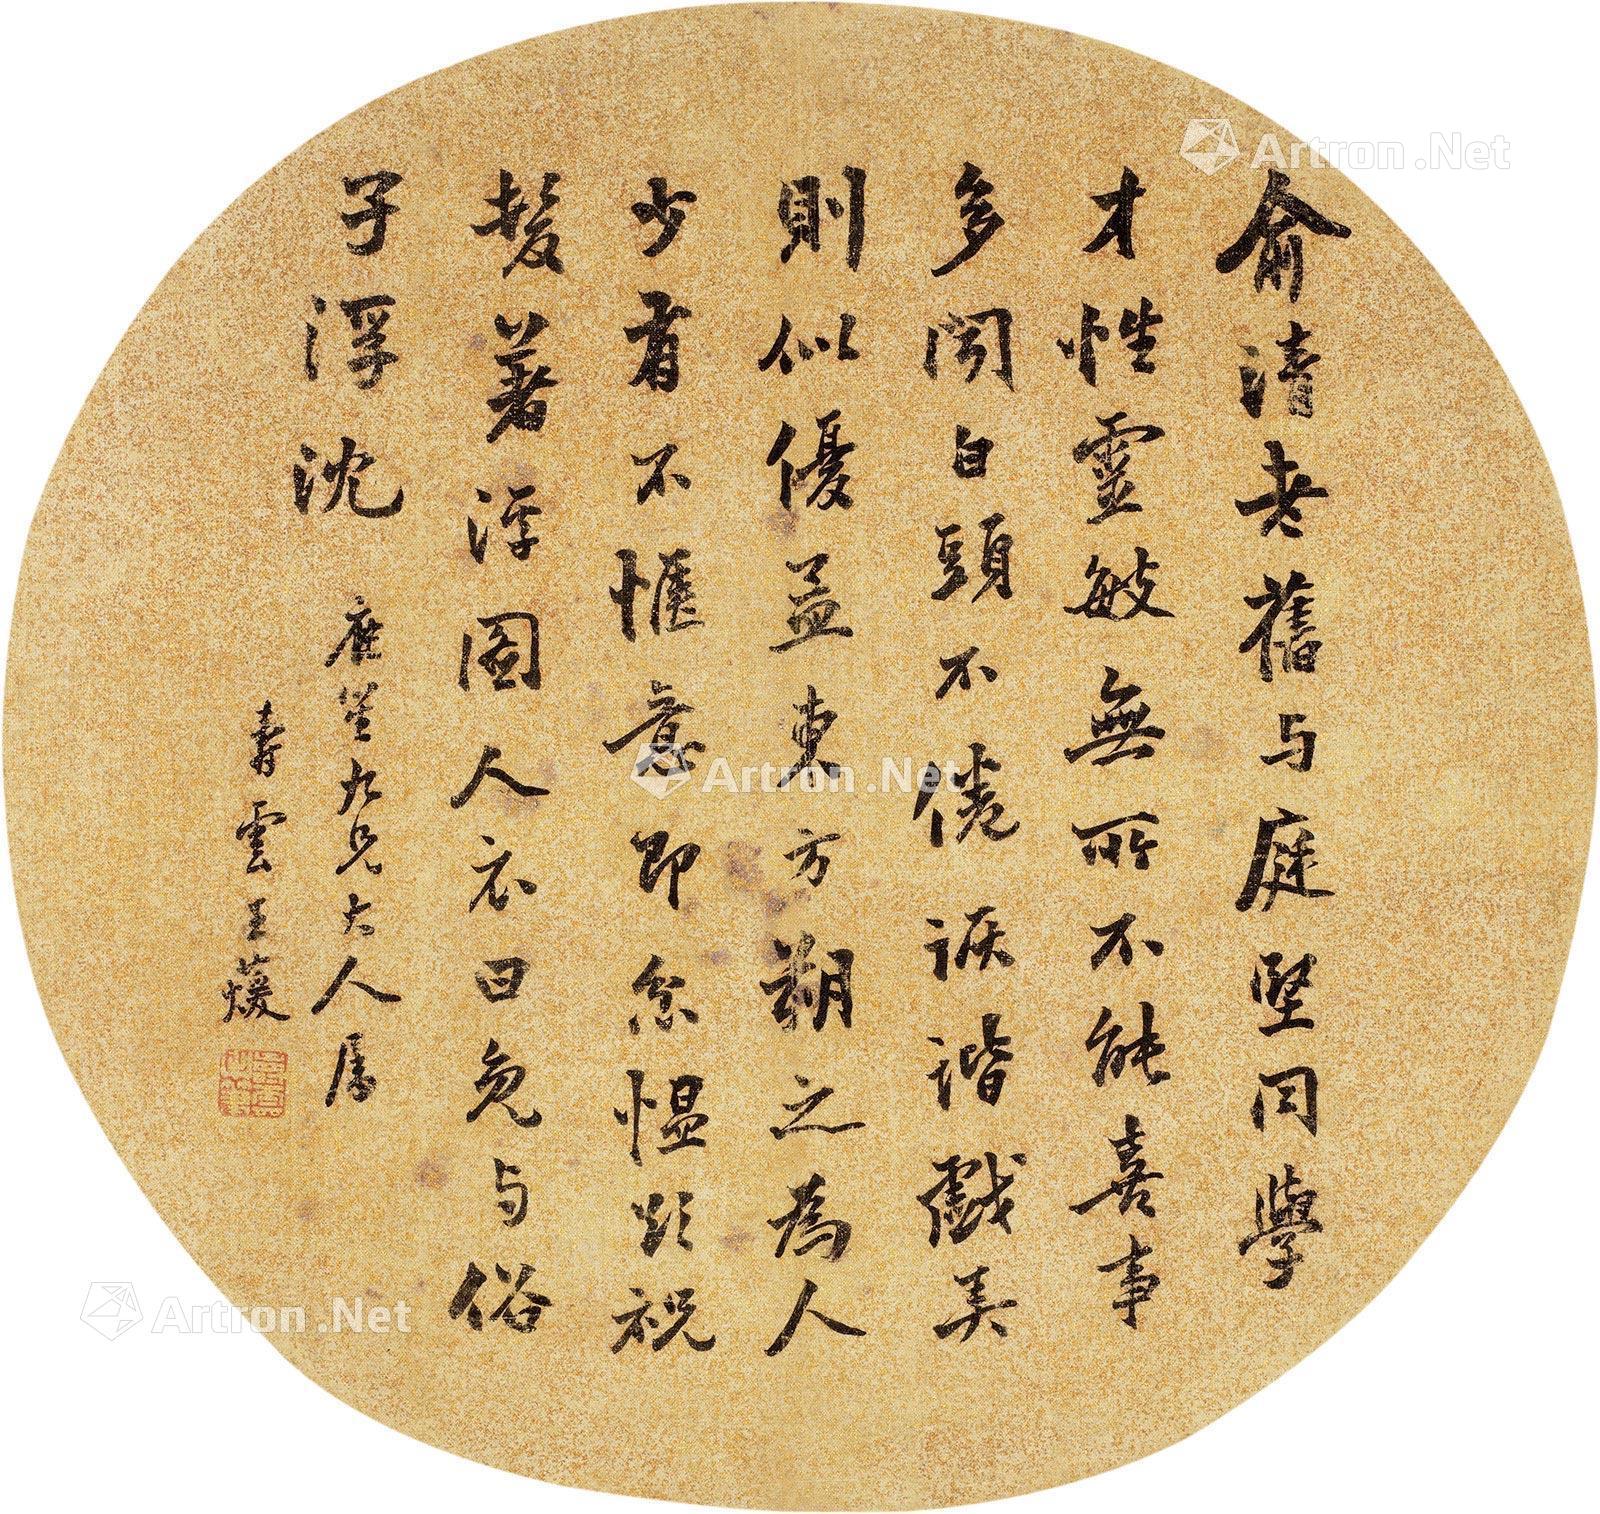 俞清老舊与庭堅同學
才性靈敏無所不能喜事
多聞白頭不倦詼諧戲笑
則似優孟東方朔之為人
少有不愜意即忿慍欲祝
髮著浮圖人衣曰免与俗
子浮沈
九兄大人属
壽雲王
Artron.Net
Artron.Net
Artron.Net